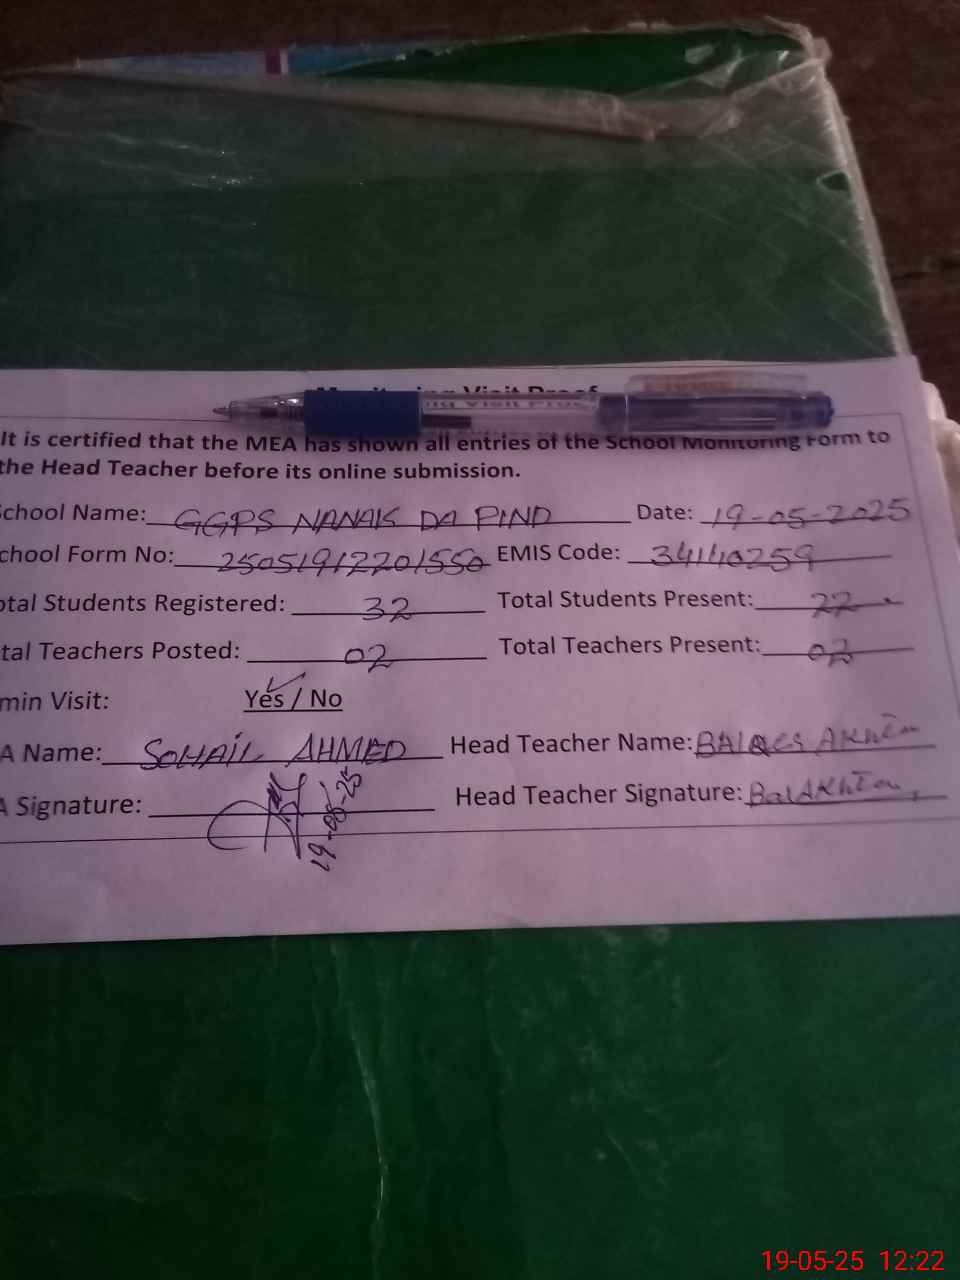 Monitoring Visit Proof
It is certified that the MEA has shown all entries of the School Monitoring Form to
the Head Teacher before its online submission.
chool Name: GGPS NANAK DA PIND Date: 19-05-2025
chool Form No: 25051912201550 EMIS Code: 34140259
otal Students Registered: 32 Total Students Present: 22
tal Teachers Posted: 02 Total Teachers Present: 02
min Visit: Yes / No
A Name: SOHAIL AHMED Head Teacher Name:
A Signature: 19-05-25 Head Teacher Signature:
19-05-25 12:22